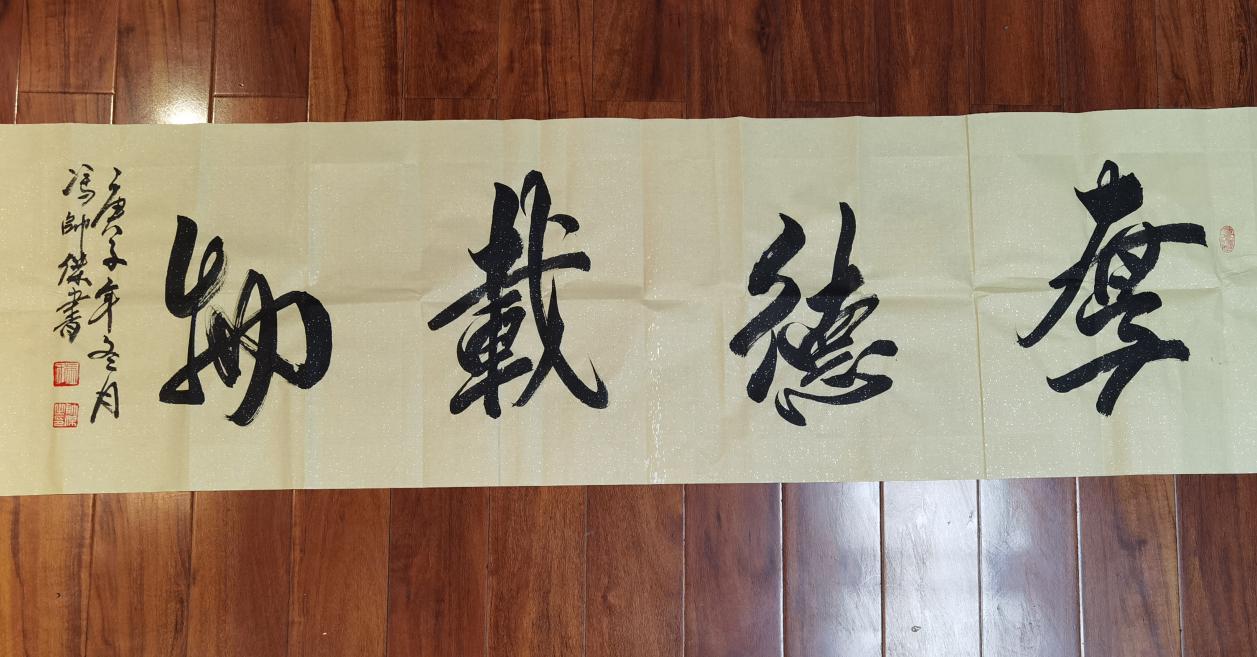 厚德載物
庚子年冬月
馮帥傑書